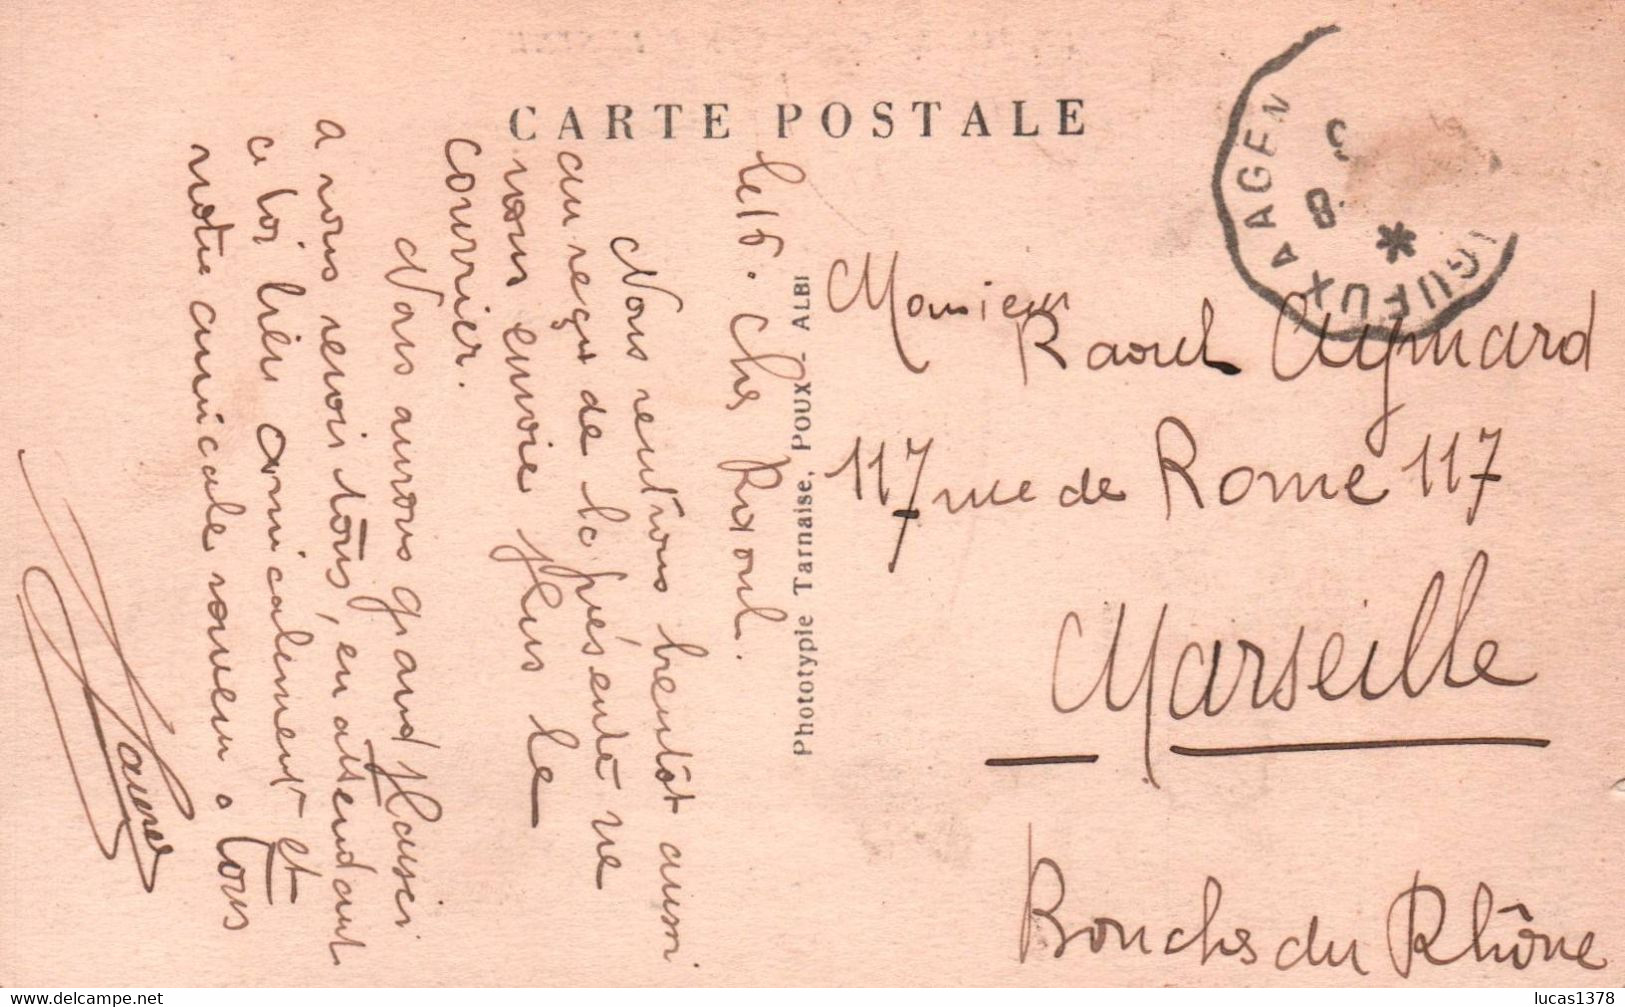 CARTE POSTALE
le 15. Cher Raoul.
Nous rentrons bientôt aussi
au reçu de la présente ne
nous envoie plus le
courrier.
Nous aurons grand plaisir
a vous revoir tous, en attendant
a toi bien amicalement et
notre amicale souvenir a tous
Phototypie Tarnaise, POUX - ALBI
GUEUX A AGEN
8
*
Monsieur
Raoul Aymard
117 rue de Rome 117
Marseille
Bouches du Rhône
delcampe.net
lucas1378